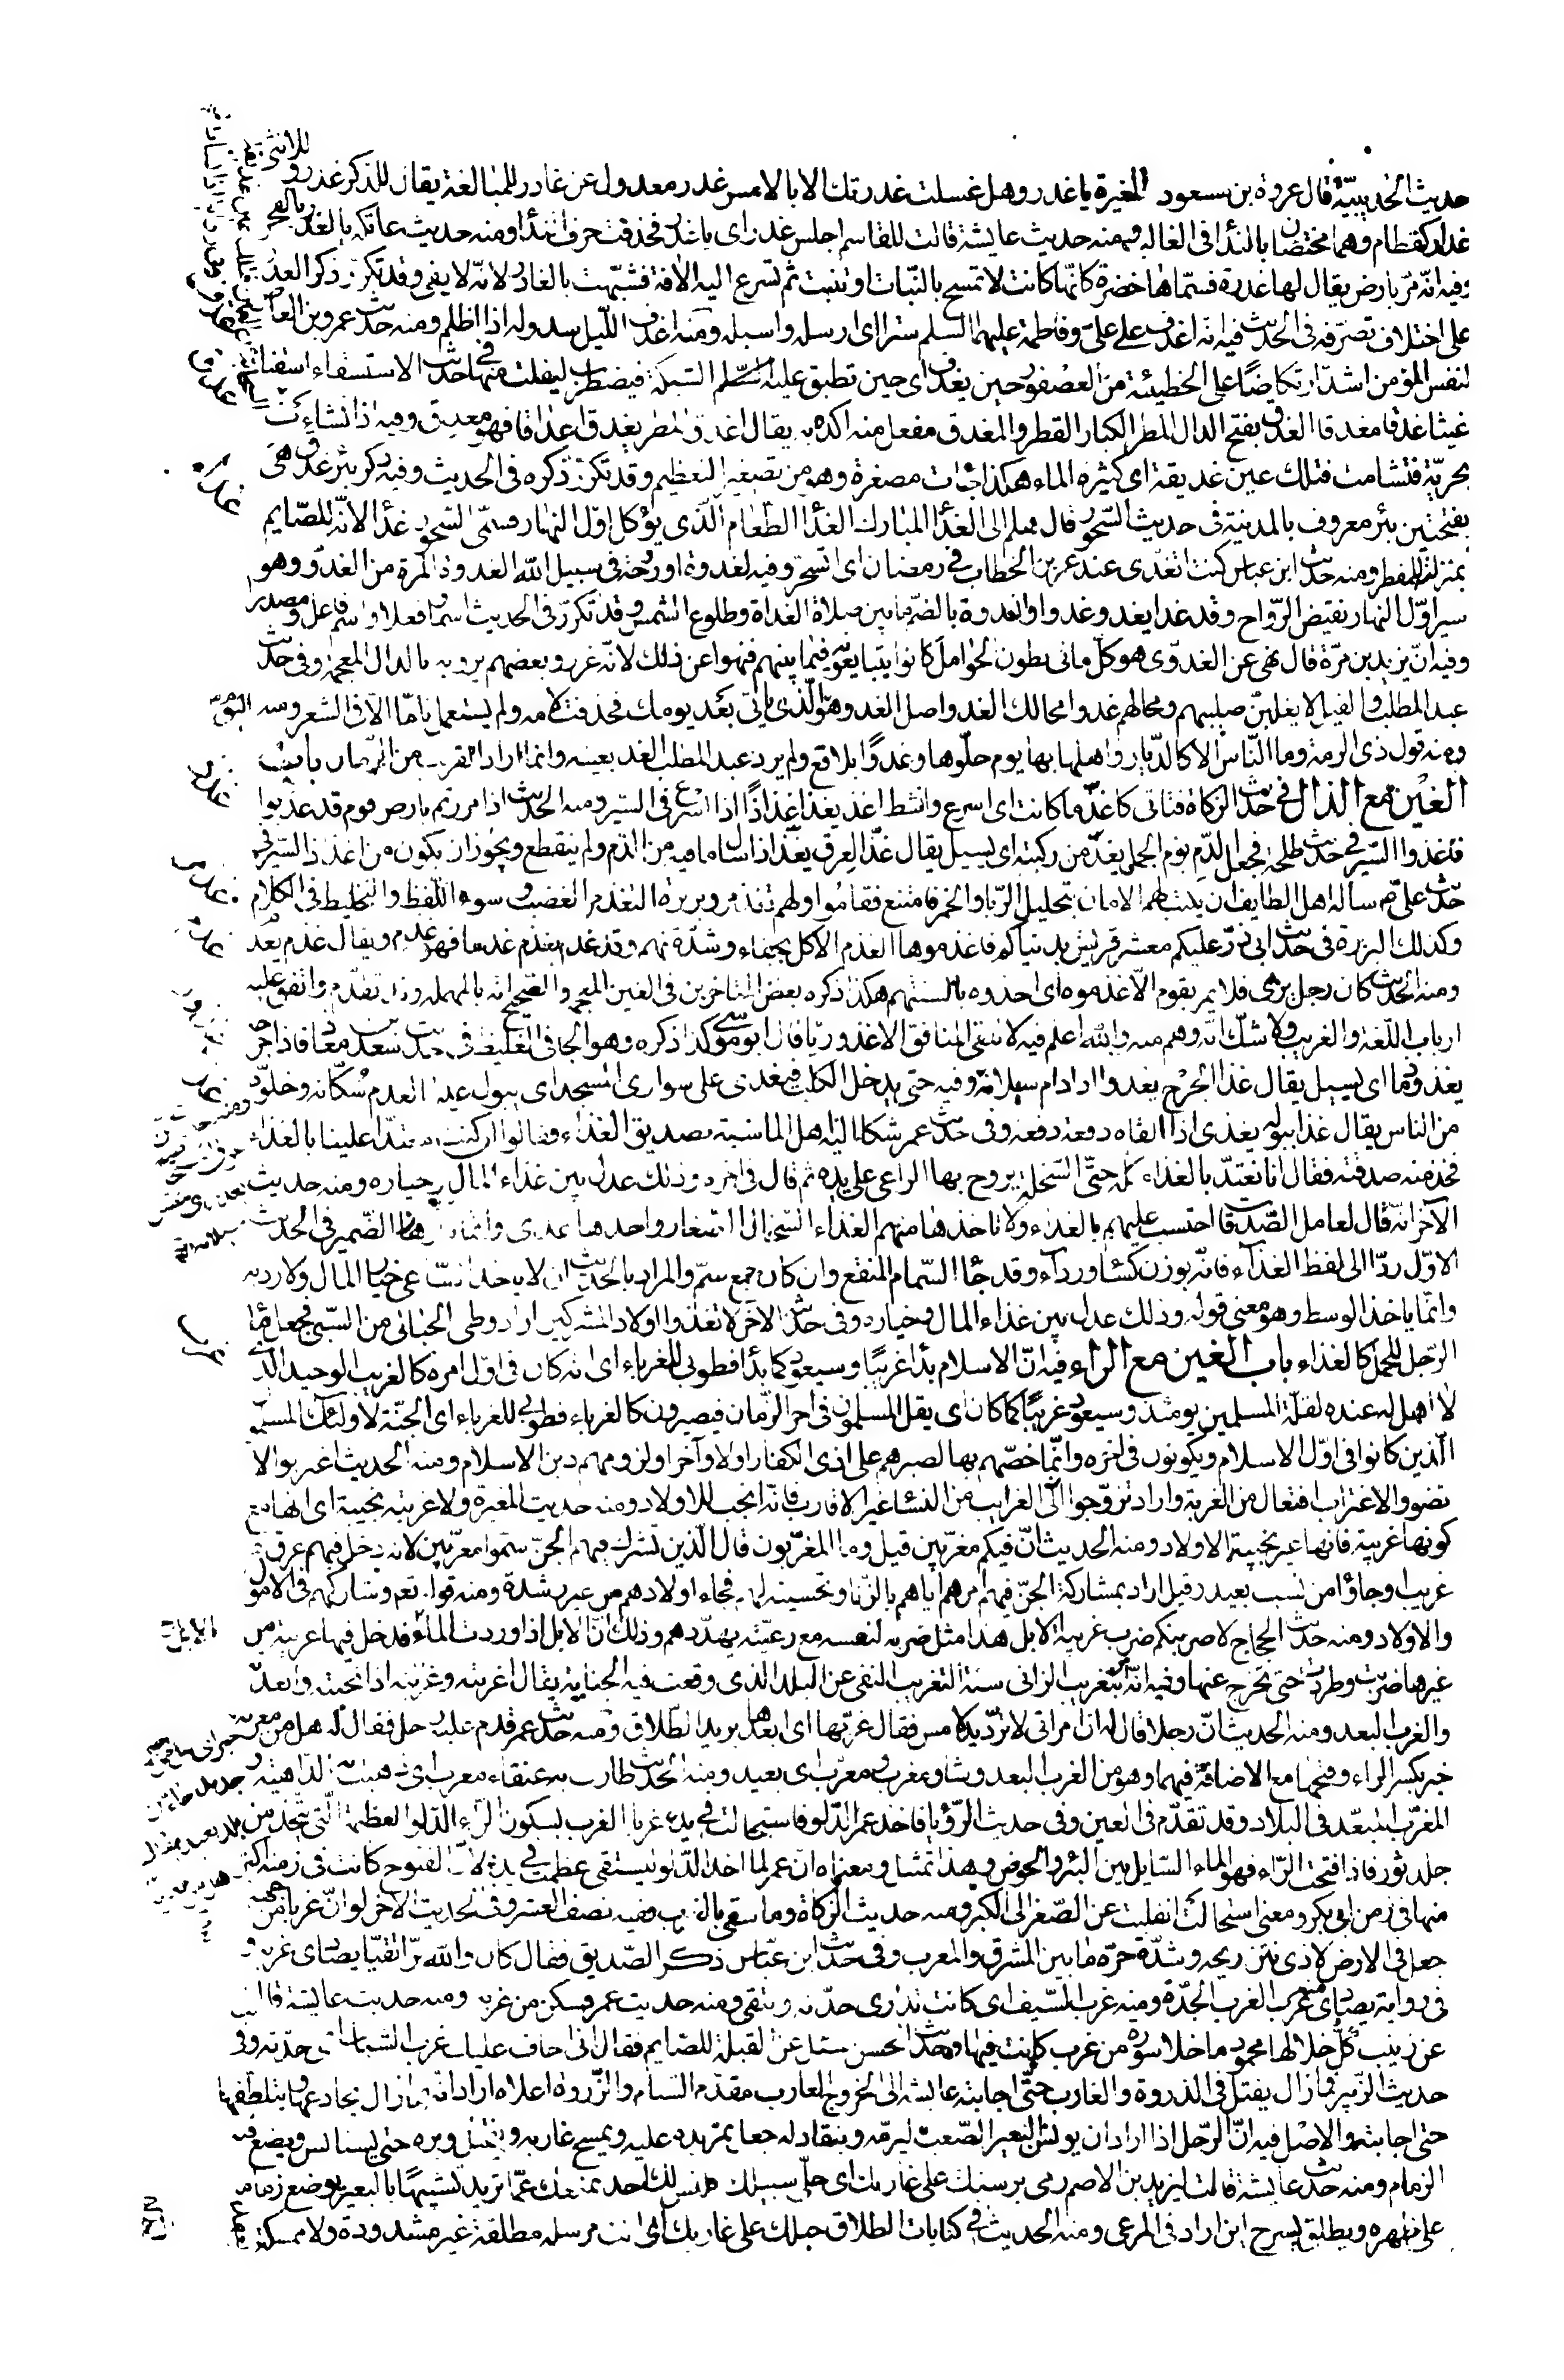 حديث الحديبيّة قال عروة بن مسعود للمغيرة يا غدر وهل غسلت غدرتك الا بالامس غدر معدول عن غادر للمبالغة يقال للذكر غدر و للانثى
غدار كقطام وهما مختصان بالندا فى الغالب ومنه حديث عايشة قالت للقاسم اجلس غدر اى يا غدر فحذفت حرف الندا ومنه حديث عاتكة يا لغدر يا لفجر
وفيه انّه مرّ بارض يقال لها غدرة فسمّاها خضرة كانّها كانت لا تسمح بالنّبات او تنبت ثم تسرع اليه الافة فشبّهت بالغادر لانّه لا يفى وقد تكرّر ذكر الغدر
على اختلاف تصرّفه فى الحديث فيه انه اغدف على علىّ وفاطمة عليهما السلم سترا اى ارسله واسبله ومنه اغدف اللّيل سدوله اذا اظلم ومنه حديث عمرو بن العاص
لنفس المؤمن اشدّ ارتكاضًا على الخطيئة من العصفور حين يغدف اى حين تطبق عليه الشبكة فيضطرب ليفلت منها فى حديث الاستسقاء اسقنا
غيثا غدقا مغدقا الغدق بفتح الدال المطر الكبار القطر والمغدق مفعل منه اكده به يقال اغدق المطر يغدق اغداقا فهو مغدق وفيه اذا نشاءت
بحريّة فتشامت فتلك عين غديقة اى كثيرة الماء هكذا جاءت مصغرة وهو من تصغير التعظيم وقد تكرّر ذكره فى الحديث وفيه ذكر بئر غدق هى
بفتحتين بئر معروف بالمدينة فى حديث السّحور قال هلم الى الغدا المبارك الغدا الطّعام الّذى يؤكل اوّل النهار فسمّى السّحور غدا لانّه للصّايم
بمنزلته للمفطر ومنه حديث ابن عباس كنت اتغدّى عند عمر بن الخطاب فى رمضان اى اتسحّر وفيه لغدوة او روحة فى سبيل الله الغدوة المرة من الغدو وهو
سير اوّل النهار نقيض الرّواح وقد غدا يغدو غدوا والغدوة بالضّم ما بين صلاة الغداة وطلوع الشمس وقد تكرّر فى الحديث اسما وفعلا واسم فاعل ومصدرا
وفيه انّ يزيد بن مرّة قال نهى عن الغدوّى هو كلّ ما فى بطون الحوامل كانوا يتبايعونه فيما بينهم فنهوا عن ذلك لانّه غرر وبعضهم يرويه بالذال المعجمة وفى حديث
عبد المطلب والفيل لا يغلبنّ صليبهم ومحالهم غدوا محالك الغدو اصل الغد وهو الّذى ياتى بعد يومك فحذفت لامه ولم يستعمل تامّا الا فى الشعر ومنه
ومنه قول ذى الرمة وما النّاس الا كالدّيار واهلها بها يوم حلّوها وغدوًا بلاقع ولم يرد عبد المطلب الغد بعينه وانما اراد القريب من الزمان باب
الغين مع الذال فى حديث الزكاة فتاتى كاغذّ ما كانت اى اسرع وانشط اغذ يغذ اغذاذًا اذا اسرع فى السّير ومنه الحديث اذا مررتم بارض قوم قد عذبوا
فاغذوا السّير فى حديث طلحة فجعل الدّم يوم الجمل يغذّ من ركبته اى يسيل يقال غذّ العرق يغذّ اذا سال ما فيه من الدّم ولم ينقطع ويجوز ان يكون من اغذاذ السّير فى
حديث علىّ ع م ساله اهل الطايف ان يكتب لهم الامان بتحليل الرّبا والخمر فامتنع فقاموا ولهم تغذمر وبربرة التغذمر الغضب وسوء اللّفظ والتخليط فى الكلام
وكذلك البربرة فى حديث ابى ذرّ عليكم معشر قريش بدنياكم فاغذموها الغذم الاكل بجفاء وشدّة نهم وقد غذم يغذم غذما فهو غذم ويقال غذم يغذم
ومنه الحديث كان رجل يرائى فلا يمر بقوم الّا غذموه اى اخذوه بالسنتهم هكذا ذكره بعض المتاخرين فى الغين المعجمة والصحيح انه بالمهملة وقد تقدّم واتفق عليه
ارباب اللّغة والغريب ولا شكّ انّه وهم منه والله اعلم فيه لا تلقى المنافق الا غذوريّا قال ابو موسى كذا ذكره وهو الجافى الغليظ فى حديث سعد بن معاذ فاذا جرحه
يغذو دما اى يسيل يقال غذا الجرح يغذو اذا دام سيلانه وفيه حتى يدخل الكلب فيغذى على سوارى المسجد اى يبول عليها لعدم سكّانه وخلوّه
من الناس يقال غذا ببوله يغذى اذا القاه دفعة دفعة وفى حديث عمر شكا اليه اهل الماشية تصديق الغذاء وقالوا ان كنت معتدّا علينا بالغذاء
فخذ منه صدقته فقال انا نعتدّ بالغذاء كلّه حتى السّخلة يروح بها الراعى على يده ثم قال فى اخره وذلك عدل بين غذاء المال وخياره ومنه حديثه
الآخر انّه قال لعامل الصّدقات احتسب عليهم بالغذاء ولا تاخذها منهم الغذاء السّخال الصغار واحدها غذى وانما ذكر هنا الضّمير فى الحديث
الاوّل ردّا الى لفظ الغذاء فانّه بوزن كساء ورداء وقد جاء السّمام المنقع وان كان جمع سمّ والمراد بالحديث ان لا ياخذ الساعى خيار المال ولا رديه
وانّما ياخذ الوسط وهو معنى قوله وذلك عدل بين غذاء المال وخياره وفى حديث الاخر لا تغذوا اولاد المشركين اراد وطى الحبالى من السّبى فجعل ماء
الرّجل للحمل كالغذاء باب الغين مع الراء فيه انّ الاسلام بدا غريبًا وسيعود كما بدا فطوبى للغرباء اى انه كان فى اوّل امره كالغريب الوحيد الّذى
لا اهل له عنده لقلّة المسلمين يومئذ وسيعود غريبًا كما كان اى يقل المسلمون فى اخر الزّمان فيصيرون كالغرباء فطوبى للغرباء اى الجنّة لاولئك المسلمين
الّذين كانوا فى اوّل الاسلام ويكونون فى اخره وانّما خصّهم بها لصبرهم على اذى الكفار اولا وآخرا ولزومهم دين الاسلام ومنه الحديث اغتربوا لا
تضووا الاغتراب افتعال من الغربة واراد تزوّجوا الى الغرايب من النسا غير الاقارب فانّه انجب للاولاد ومنه حديث المغيرة ولا غريبة نجيبة اى انها مع
كونها غريبة فانها غير نجيبة الاولاد ومنه الحديث انّ فيكم مغرّبين قيل وما المغرّبون قال الّذين تشرك فيهم الجنّ سمّوا مغرّبين لانه دخل فيهم عرق
غريب او جاؤا من نسب بعيد وقيل اراد بمشاركة الجنّ فيهم امرهم اياهم بالزّنا وتحسينه لهم فجاء اولادهم من غير رشدة ومنه قوله تعم وشاركهم فى الاموال
والاولاد ومنه حديث الحجاج لاضربنكم ضرب غريبة الابل هذا مثل ضربه لنفسه مع رعيّته يهدّدهم وذلك انّ الابل اذا وردت الماء فدخل فيها غريبة من
غيرها ضربت وطردت حتى تخرج عنها وفيه انّه امر بتغريب الزانى سنة التغريب النفى عن البلد الذى وقعت فيه الجناية يقال اغربته وغربته اذا نحيته وابعدته
والغرب البعد ومنه الحديث انّ رجلا قال له ان امراتى لا تردّ يد لامس فقال غرّبها اى ابعدها يريد الطلاق ومنه حديث عمر قدم عليه رجل فقال له هل من مغربة
خبر بكسر الراء وفتحها مع الاضافة فيهما وهو من الغرب البعد وشاو مغرب ومغرب اى بعيد ومنه الحديث طارت به عنقاء مغرب اى ذهبت به الداهية و
المغرّب المبعّد فى البلاد وقد تقدّم فى العين وفى حديث الرّؤيا فاخذ عمر الدّلو فاستحالت فى يده غربا الغرب بسكون الرّاء الدّلو العظيمة الّتى تتخذ من
جلد ثور فاذا فتحت الرّاء فهو الماء السّايل بين البئر والحوض وهذا تمثيل ومعناه ان عمر لما اخذ الدّلو ليستقى عظمت فى يده لانّ الفتوح كانت فى زمنه اكثر
منها فى زمن ابى بكر ومعنى استحالت انقلبت عن الصّغر الى الكبر ومنه حديث الزّكاة وما سقى بالغرب ففيه نصف العشر وفى الحديث الآخر لو انّ غربا من جهنم
جعل فى الارض لاذى نتن ريحه وشدّة حرّه ما بين المشرق والمغرب وفى حديث ابن عبّاس ذكر الصّديق فقال كان والله برّا تقيّا يصادى غربه و
فى رواية يصادى منه غرب الغرب الحدّة ومنه غرب السّيف اى كانت تدارى حدّته وتتقى ومنه حديث عمر فسكّن من غربه ومنه حديث عايشة قالت
عن زينب كلّ خلالها محمود ما خلا سورة من غرب كانت فيها وحديث الحسن سئل عن القبلة للصّايم فقال انى اخاف عليك غرب الشباب اى حدّته وفى
حديث الزّبير فما زال يفتل فى الذروة والغارب حتّى اجابته عايشة الى الخروج الغارب مقدّم السنام والذّروة اعلاه اراد انّه ما زال يخادعها ويتلطّفها
حتى اجابته والاصل فيه انّ الرّجل اذا اراد ان يونس البعير الصّعب ليزمّه وينقاد له جعل يمر يده عليه ويمسح غاربه ويفتل وبره حتى يستانس ويضع فيه
الزمام ومنه حديث عايشة قالت ليزيد بن الاصم رمى برسنك على غاربك اى خلّى سبيلك فليس لك احد يمنعك عمّا تريد تشبيهًا بالبعير يوضع زمامه
على ظهره ويطلق يسرح اين اراد فى المرعى ومنه الحديث فى كنايات الطلاق حبلك على غاربك اى انت مرسلة مطلقة غير مشدودة ولا ممسكة